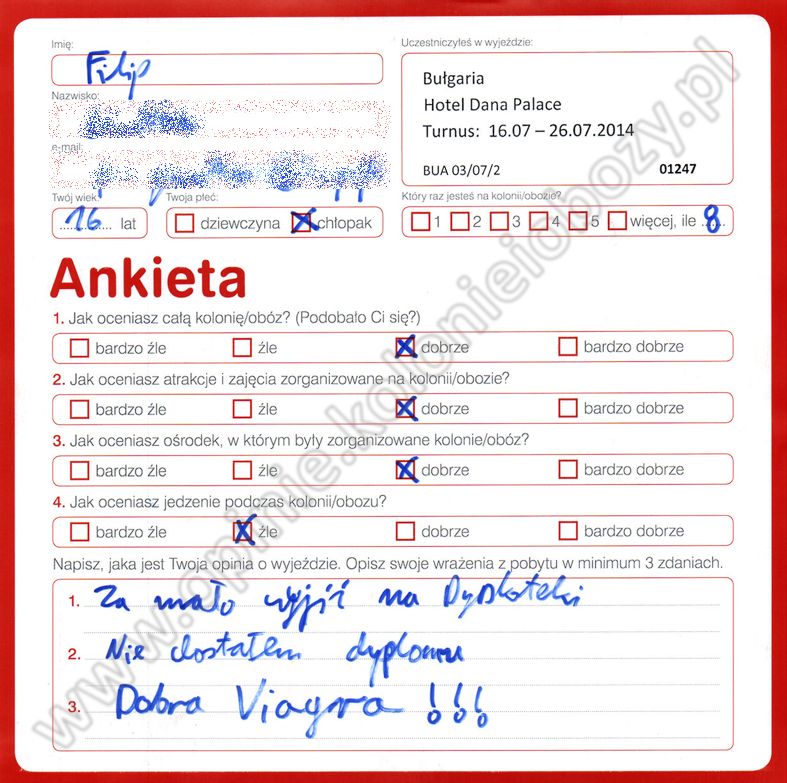 Imię:
Filip
Nazwisko:
e-mail:
Twój wiek:
16 lat
Twoja płeć:
dziewczyna chłopak
Uczestniczyłeś w wyjeździe:
Bułgaria
Hotel Dana Palace
Turnus: 16.07 – 26.07.2014
BUA 03/07/2 01247
Który raz jesteś na kolonii/obozie?
1 2 3 4 5 więcej, ile 8
Ankieta
1. Jak oceniasz całą kolonię/obóz? (Podobało Ci się?)
bardzo źle źle dobrze bardzo dobrze
2. Jak oceniasz atrakcje i zajęcia zorganizowane na kolonii/obozie?
bardzo źle źle dobrze bardzo dobrze
3. Jak oceniasz ośrodek, w którym były zorganizowane kolonie/obóz?
bardzo źle źle dobrze bardzo dobrze
4. Jak oceniasz jedzenie podczas kolonii/obozu?
bardzo źle źle dobrze bardzo dobrze
Napisz, jaka jest Twoja opinia o wyjeździe. Opisz swoje wrażenia z pobytu w minimum 3 zdaniach.
1. Za mało wyjść na Dyskoteki
2. Nie dostałem dyplomu
3. Dobra Viagra !!!
www.opinie.kolonieiobozy.pl